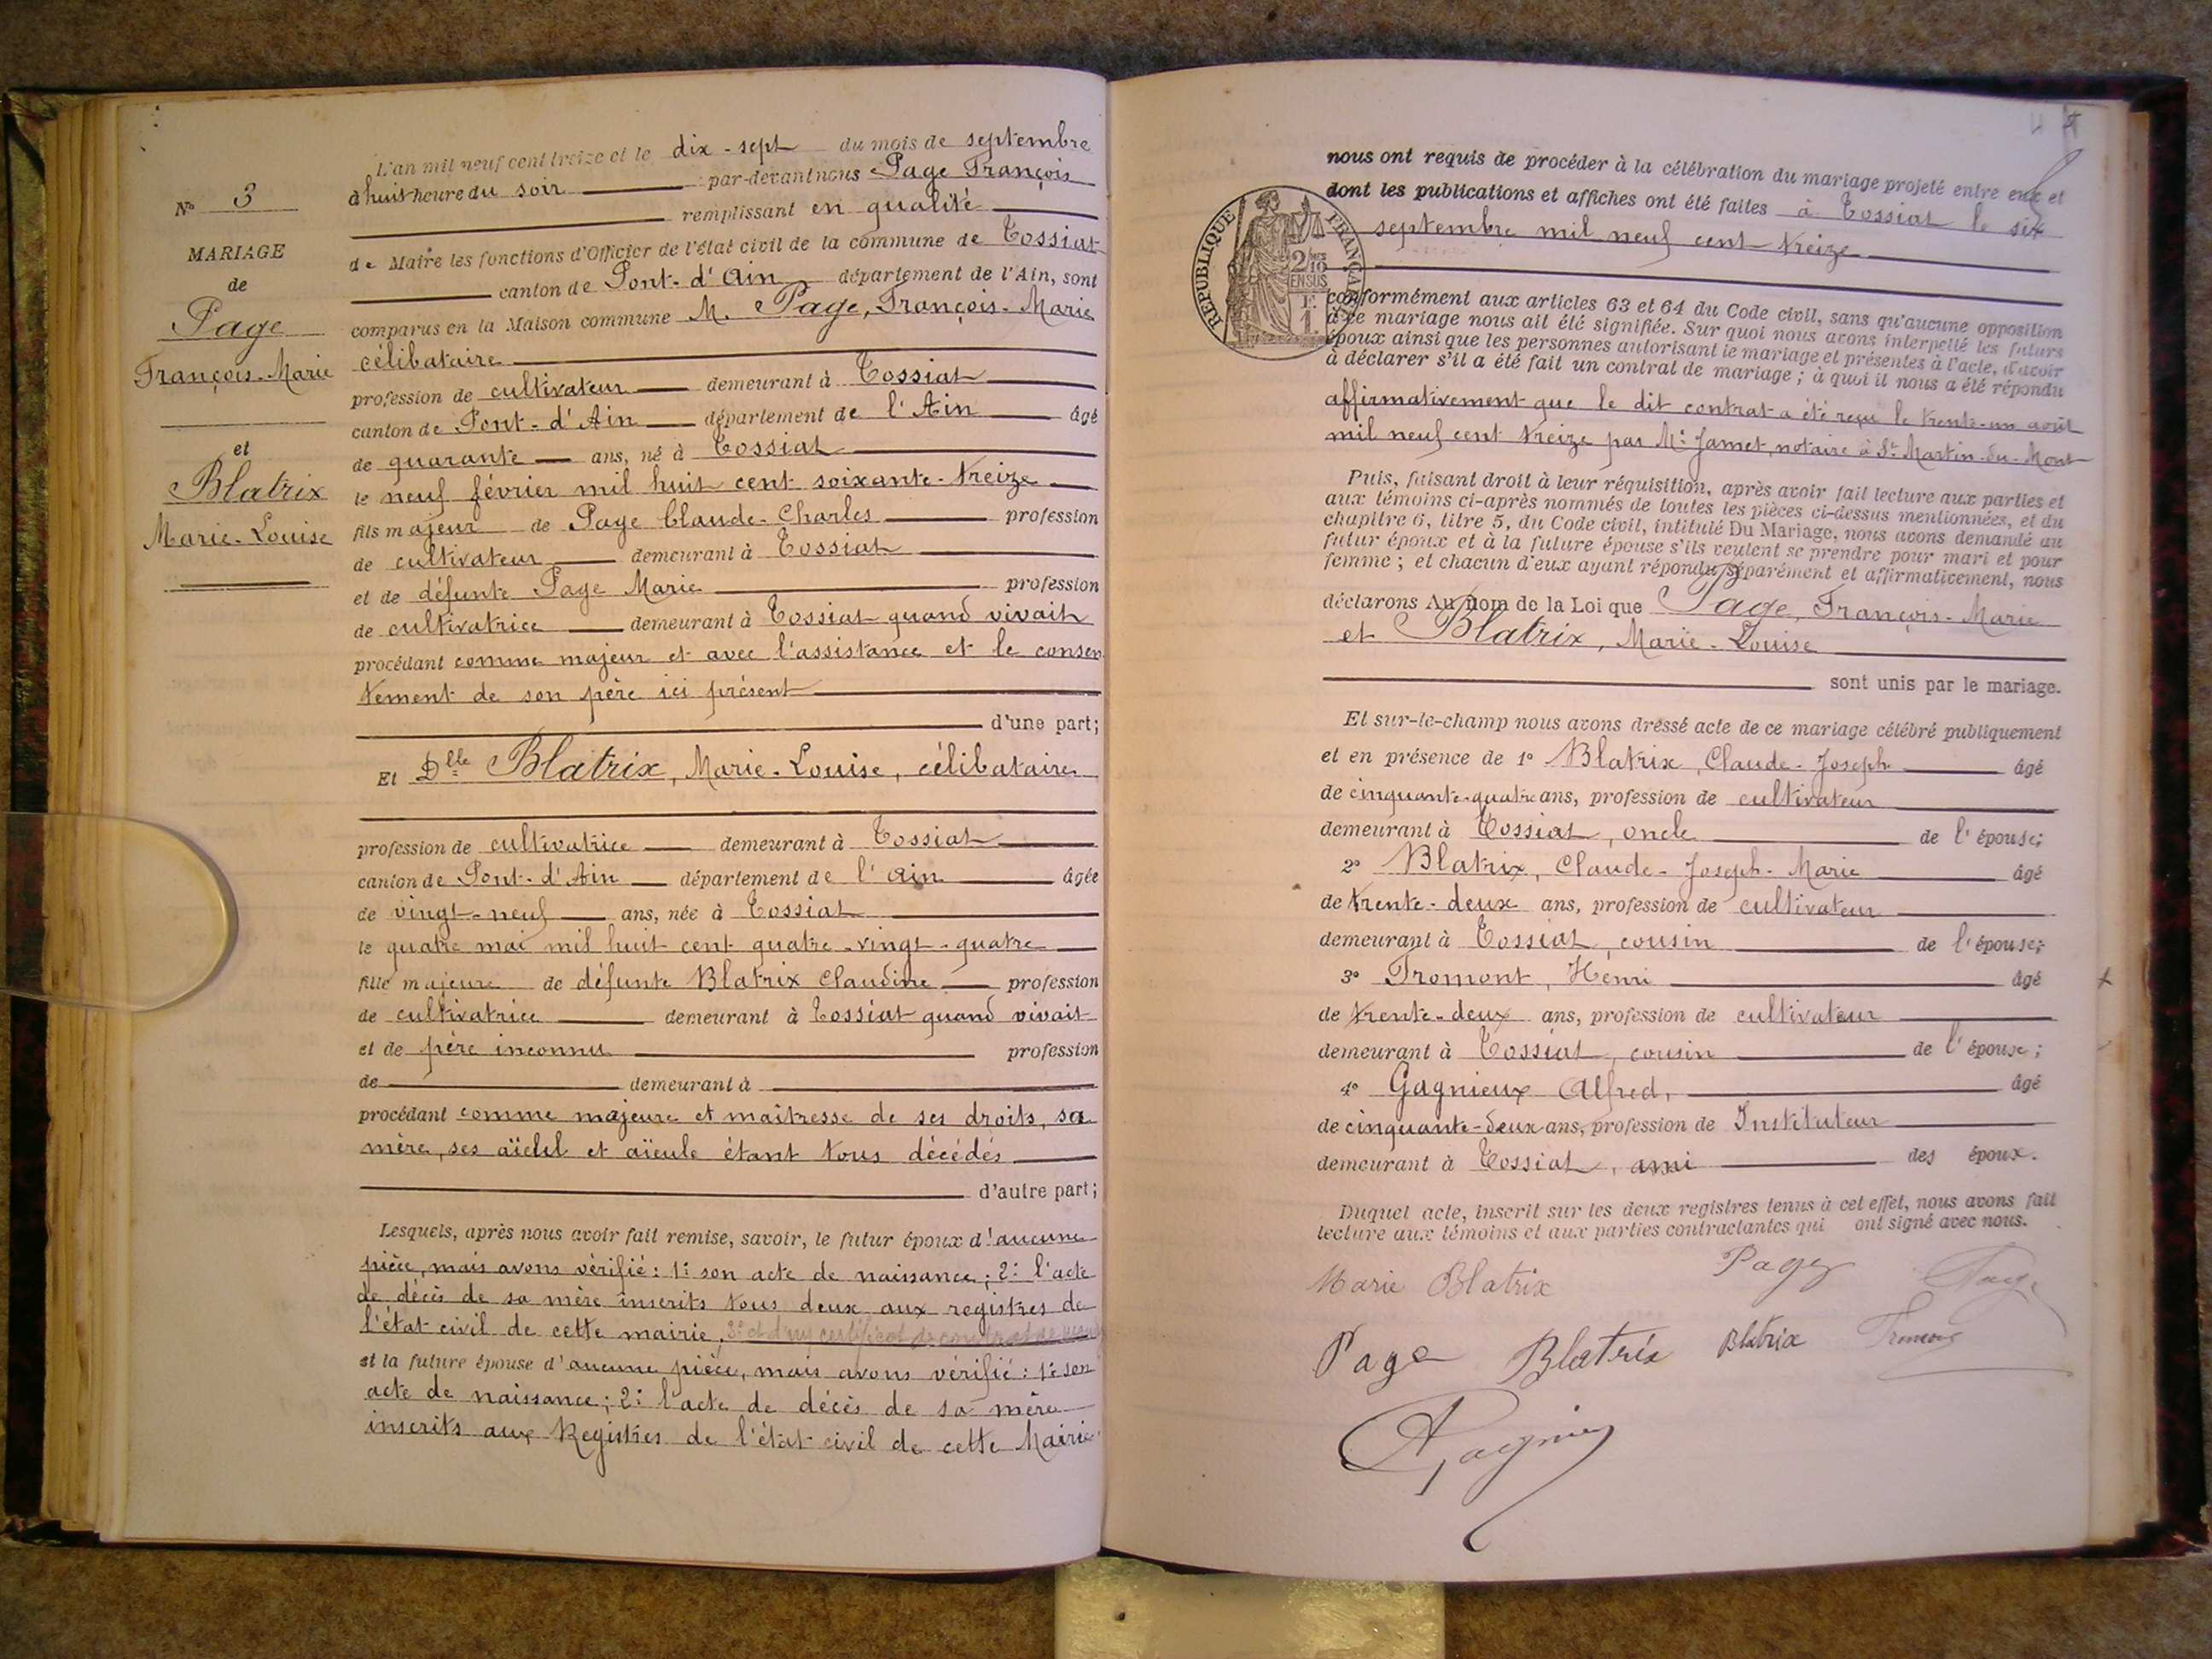 L'an mil neuf cent treize et le dix-sept du mois de septembre
à huit heure du soir par-devant nous Page François
remplissant en qualité
de Maire les fonctions d'Officier de l'état civil de la commune de Tossiat
canton de Pont-d'Ain département de l'Ain, sont
comparus en la Maison commune M. Page, François-Marie
célibataire
profession de cultivateur demeurant à Tossiat
canton de Pont-d'Ain département de l'Ain âgé
de quarante ans, né à Tossiat
le neuf février mil huit cent soixante-treize
fils majeur de Page Claude-Charles profession
de cultivateur demeurant à Tossiat
et de défunte Page Marie profession
de cultivatrice demeurant à Tossiat quand vivait
procédant comme majeur et avec l'assistance et le consen
tement de son père ici présent
d'une part;
Et Dlle Blatrix, Marie-Louise, célibataire
profession de cultivatrice demeurant à Tossiat
canton de Pont-d'Ain département de l'Ain âgée
de vingt-neuf ans, née à Tossiat
le quatre mai mil huit cent quatre-vingt-quatre
fille majeure de défunte Blatrix Claudine profession
de cultivatrice demeurant à Tossiat quand vivait
et de père inconnu profession
de demeurant à
procédant comme majeure et maîtresse de ses droits, sa
mère, ses aïeul et aïeule étant tous décédés
d'autre part;
Lesquels, après nous avoir fait remise, savoir, le futur époux d'aucune
pièce, mais avons vérifié: 1º son acte de naissance; 2º l'acte
de décès de sa mère inscrits tous deux aux registres de
l'état civil de cette mairie,
et la future épouse d'aucune pièce, mais avons vérifié: 1º son
acte de naissance; 2º l'acte de décès de sa mère
inscrits aux Registres de l'état civil de cette Mairie
Nº 3
MARIAGE
de
Page
François-Marie
et
Blatrix
Marie-Louise
nous ont requis de procéder à la célébration du mariage projeté entre eux et
dont les publications et affiches ont été faites à Tossiat le six
septembre mil neuf cent treize
RÉPUBLIQUE FRANÇAISE
2/10
EN SUS
1 F.
conformément aux articles 63 et 64 du Code civil, sans qu'aucune opposition
à ce mariage nous ait été signifiée. Sur quoi nous avons interpellé les futurs
époux ainsi que les personnes autorisant le mariage et présentes à l'acte, d'avoir
à déclarer s'il a été fait un contrat de mariage; à quoi il nous a été répondu
affirmativement que le dit contrat a été reçu le trente-un août
mil neuf cent treize par Me Jamet, notaire à St Martin-du-Mont
Puis, faisant droit à leur réquisition, après avoir fait lecture aux parties et
aux témoins ci-après nommés de toutes les pièces ci-dessus mentionnées, et du
chapitre 6, titre 5, du Code civil, intitulé Du Mariage, nous avons demandé au
futur époux et à la future épouse s'ils veulent se prendre pour mari et pour
femme; et chacun d'eux ayant répondu séparément et affirmativement, nous
déclarons Au nom de la Loi que Page, François-Marie
et Blatrix, Marie-Louise
sont unis par le mariage.
Et sur-le-champ nous avons dressé acte de ce mariage célébré publiquement
et en présence de 1º Blatrix, Claude-Joseph âgé
de cinquante-quatre ans, profession de cultivateur
demeurant à Tossiat, oncle de l'épouse;
2º Blatrix, Claude-Joseph-Marie âgé
de trente-deux ans, profession de cultivateur
demeurant à Tossiat, cousin de l'épouse;
3º Fromont, Hémi âgé
de trente-deux ans, profession de cultivateur
demeurant à Tossiat, cousin de l'épouse;
4º Gagnieux Alfred, âgé
de cinquante-deux ans, profession de Instituteur
demeurant à Tossiat, ami des époux.
Duquel acte, inscrit sur les deux registres tenus à cet effet, nous avons fait
lecture aux témoins et aux parties contractantes qui ont signé avec nous.
Marie Blatrix Page Page
Page Blatrix Blatrix Fromont